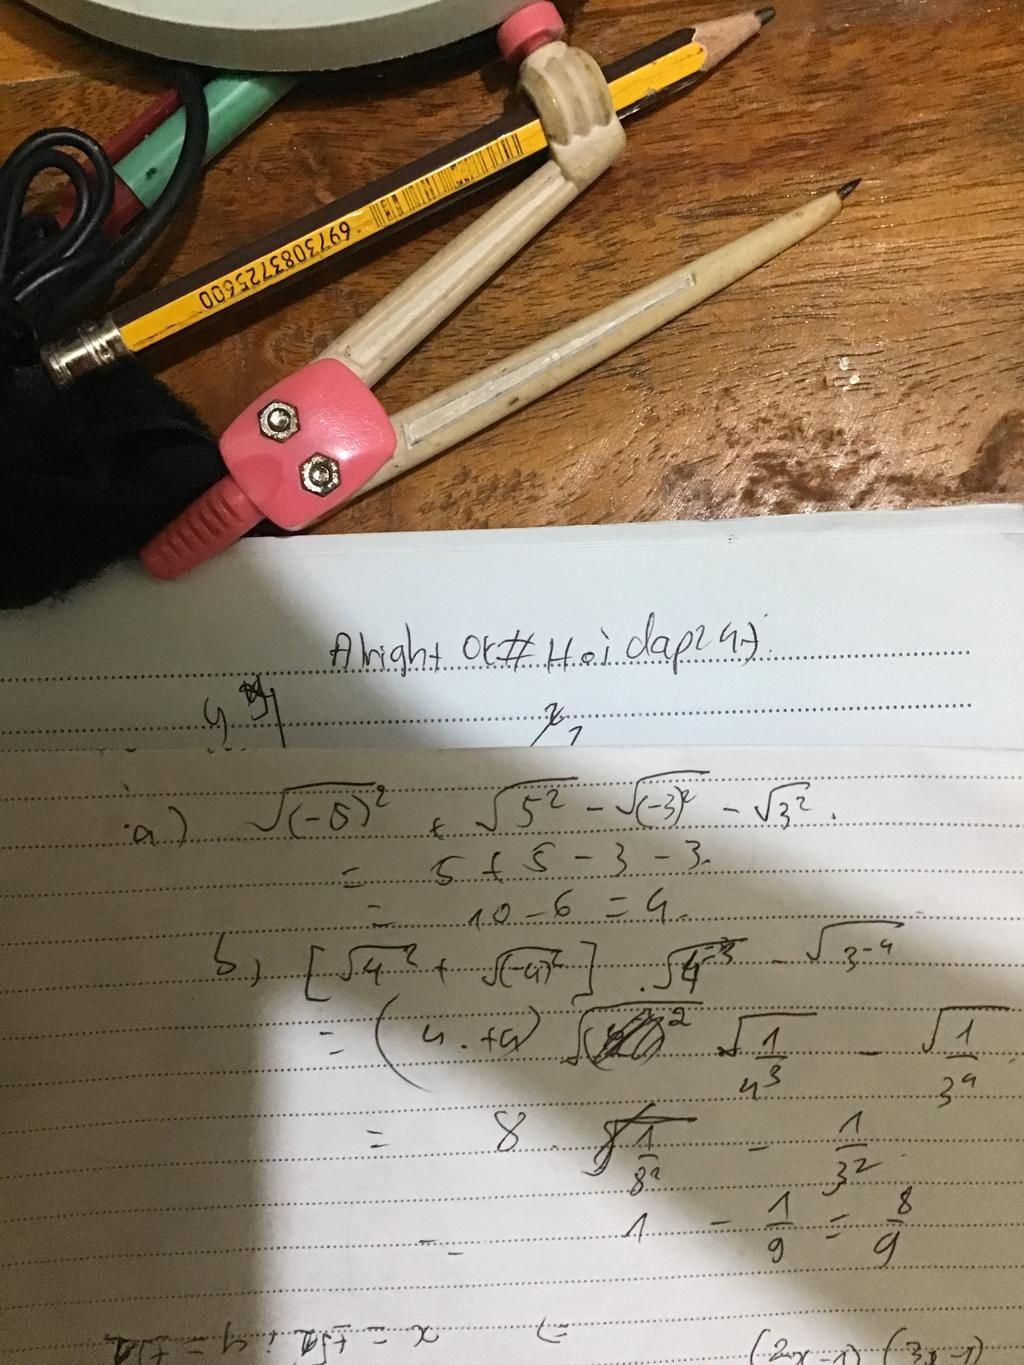 6973083725600
Alright Ok# Hoidap247
a) √(-5)² + √5² - √(-3)² - √3².
= 5 + 5 - 3 - 3.
= 10 - 6 = 4.
b) [√4² + √(-4)²] . √4⁻³ - √3⁻⁴
= (4 + 4) √1/4³ - √1/3⁴
= 8 . 1/8² - 1/3²
= 1 - 1/9 = 8/9